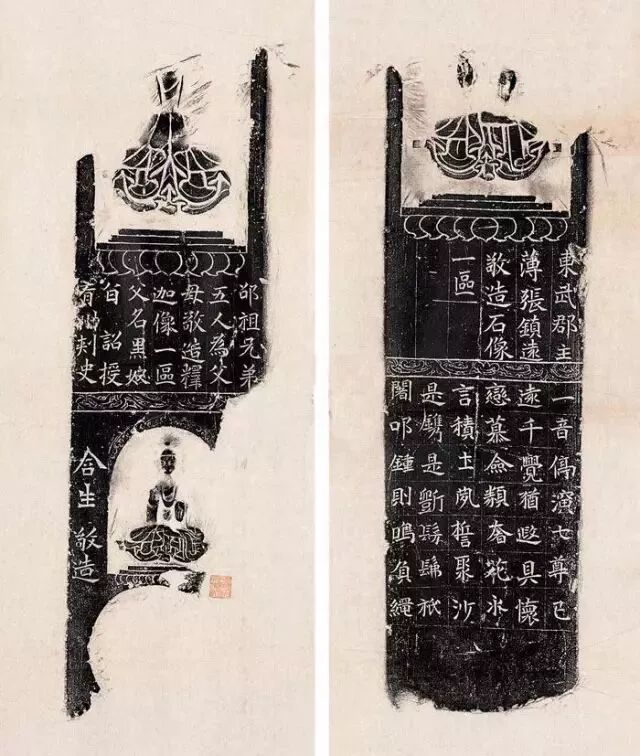 東武郡主
薄張鎮遠
敬造石像
一區
一音停演七尊已
遠千覺猶遐具懷
戀慕僉類春花氷
言積土夙誓聚沙
是鐫是斵髣髴祇
闍叩鍾則鳴負繩
祖兄弟
五人為父
母敬造釋
迦像一區
父名黑
詔授
青州刺史
含生敬造